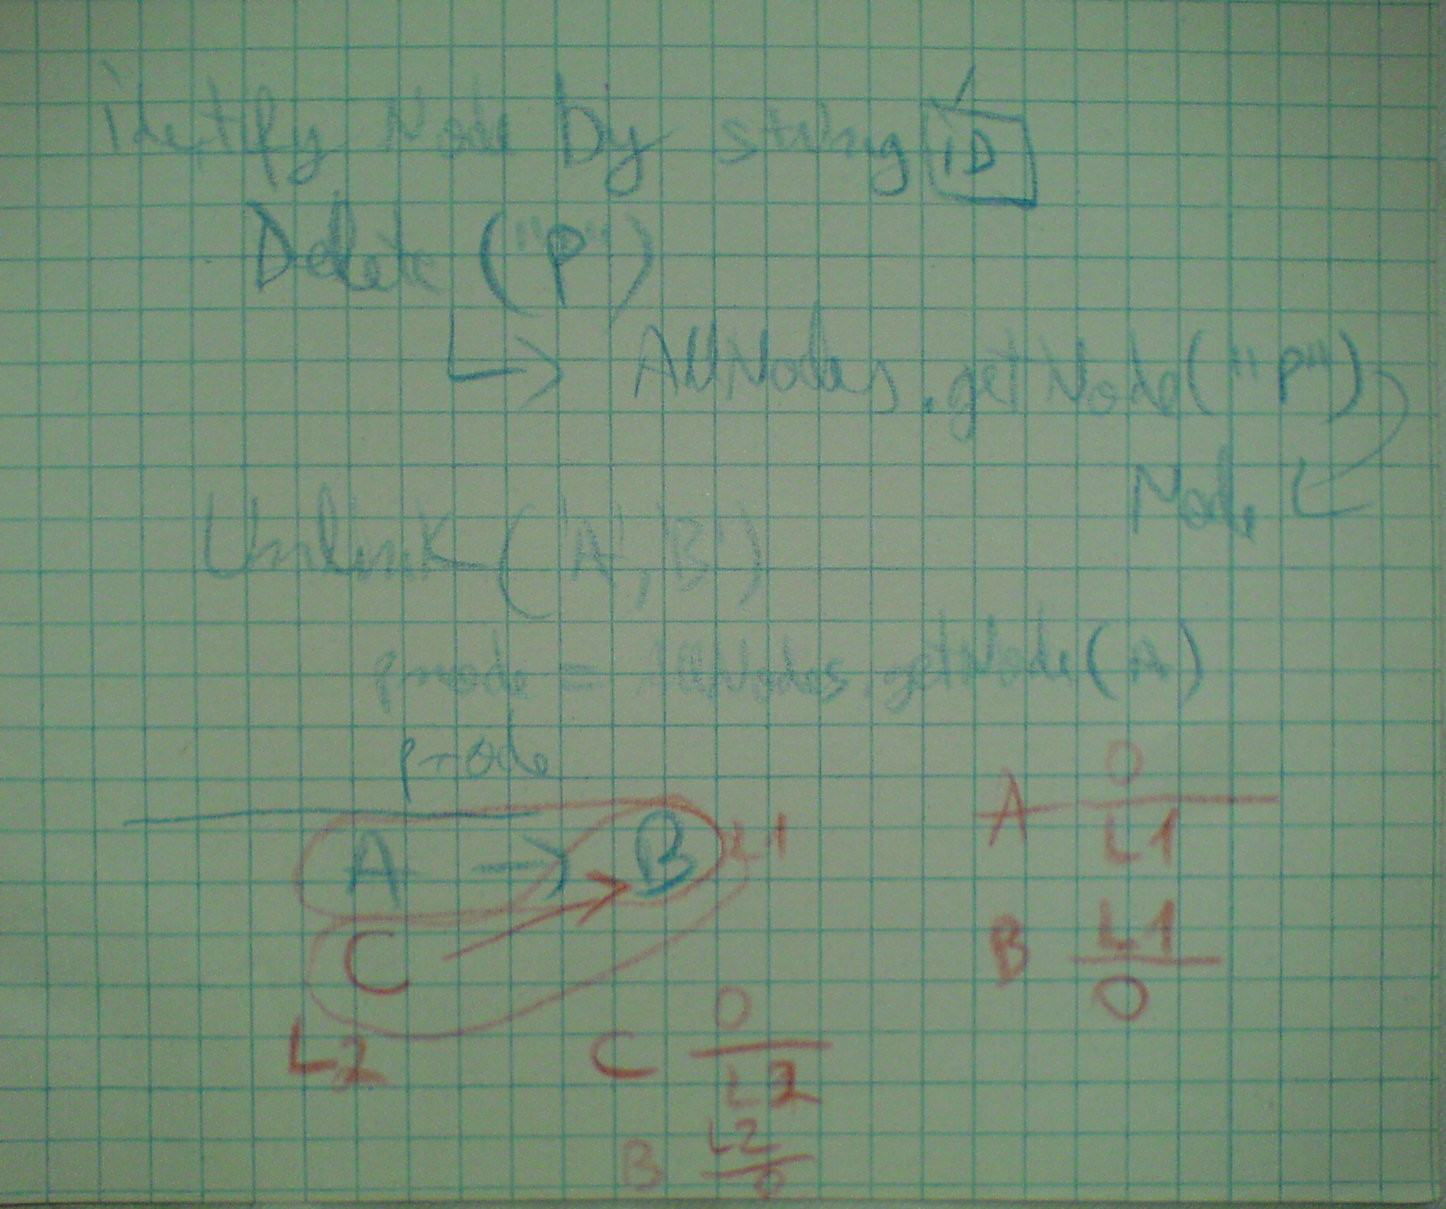 identify Node By string iD
Delete ("P")
AllNodes.getNode("P")
Node
Unlink('A','B')
pnode = AllNodes.getNode(A)
pnode
A → B L1
C
L2
A 0
L1
B L1
0
C 0
L2
B L2
0